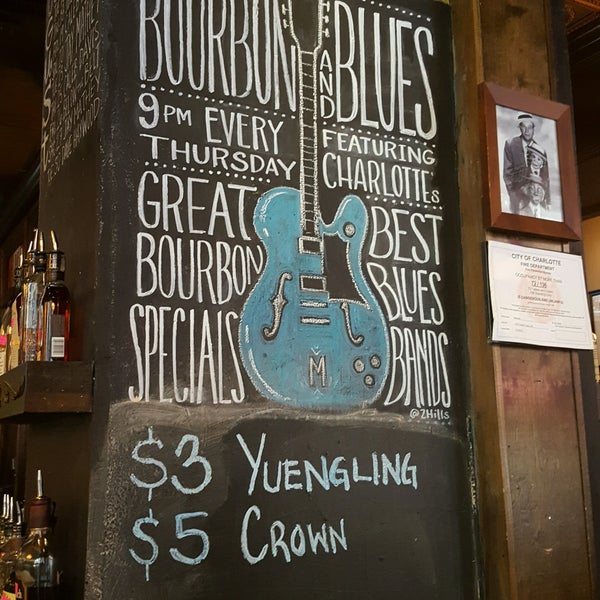 BOURBON AND BLUES
9PM EVERY THURSDAY
FEATURING CHARLOTTE'S
GREAT
BOURBON
SPECIALS
BEST
BLUES
BANDS
M
@ZHills
$3 YUENGLING
$5 CROWN
CITY OF CHARLOTTE
FIRE DEPARTMENT